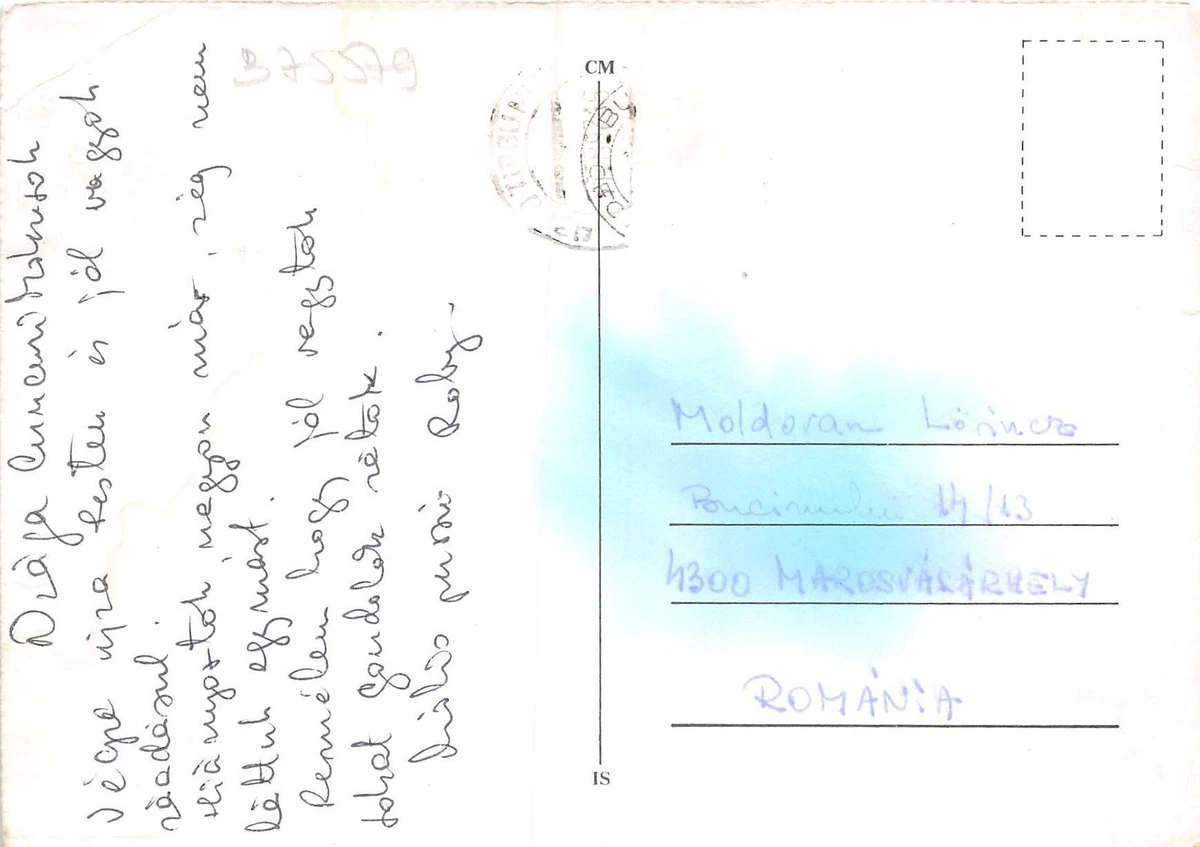 Drága Cumcumikátok
Végre újra Pesten és jól vagyok
ráadásul.
Hiányoztok nagyon már, rég nem
láttuk egymást.
Remélem hogy jól vagytok
sokat gondolok rátok.
puszi Roby
375579
CM
IS
Moldovan Lőrincz
Bucinului 14/13
4300 MAROSVÁSÁRHELY
ROMÁNIA